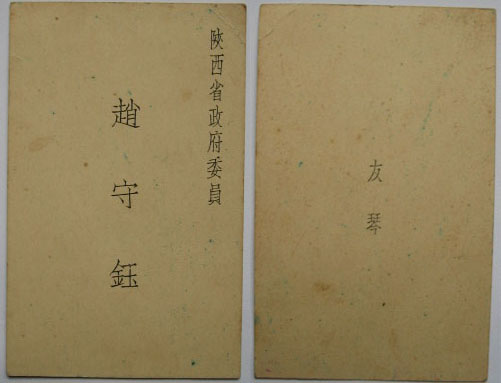 陝西省政府委員
趙守鈺
友琴